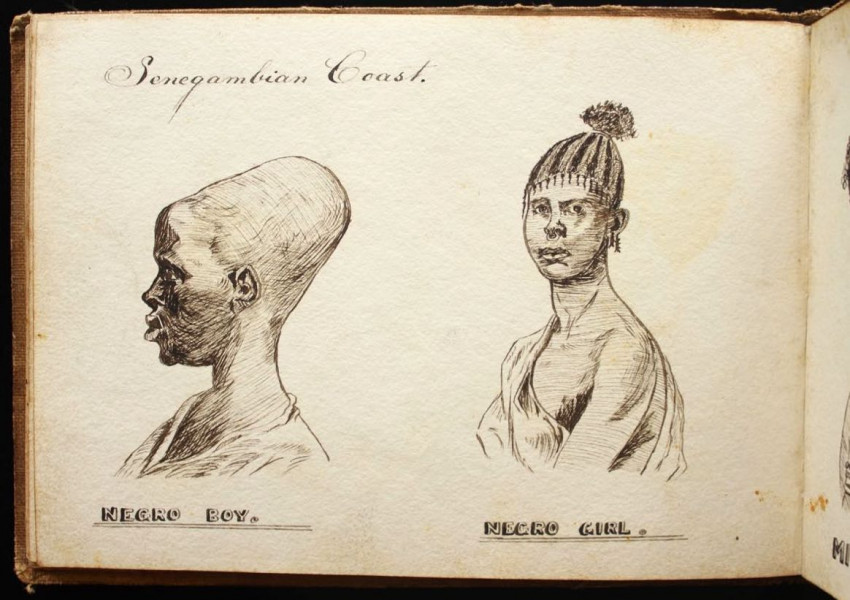 Senegambian Coast.
NEGRO BOY.
NEGRO GIRL.
MI